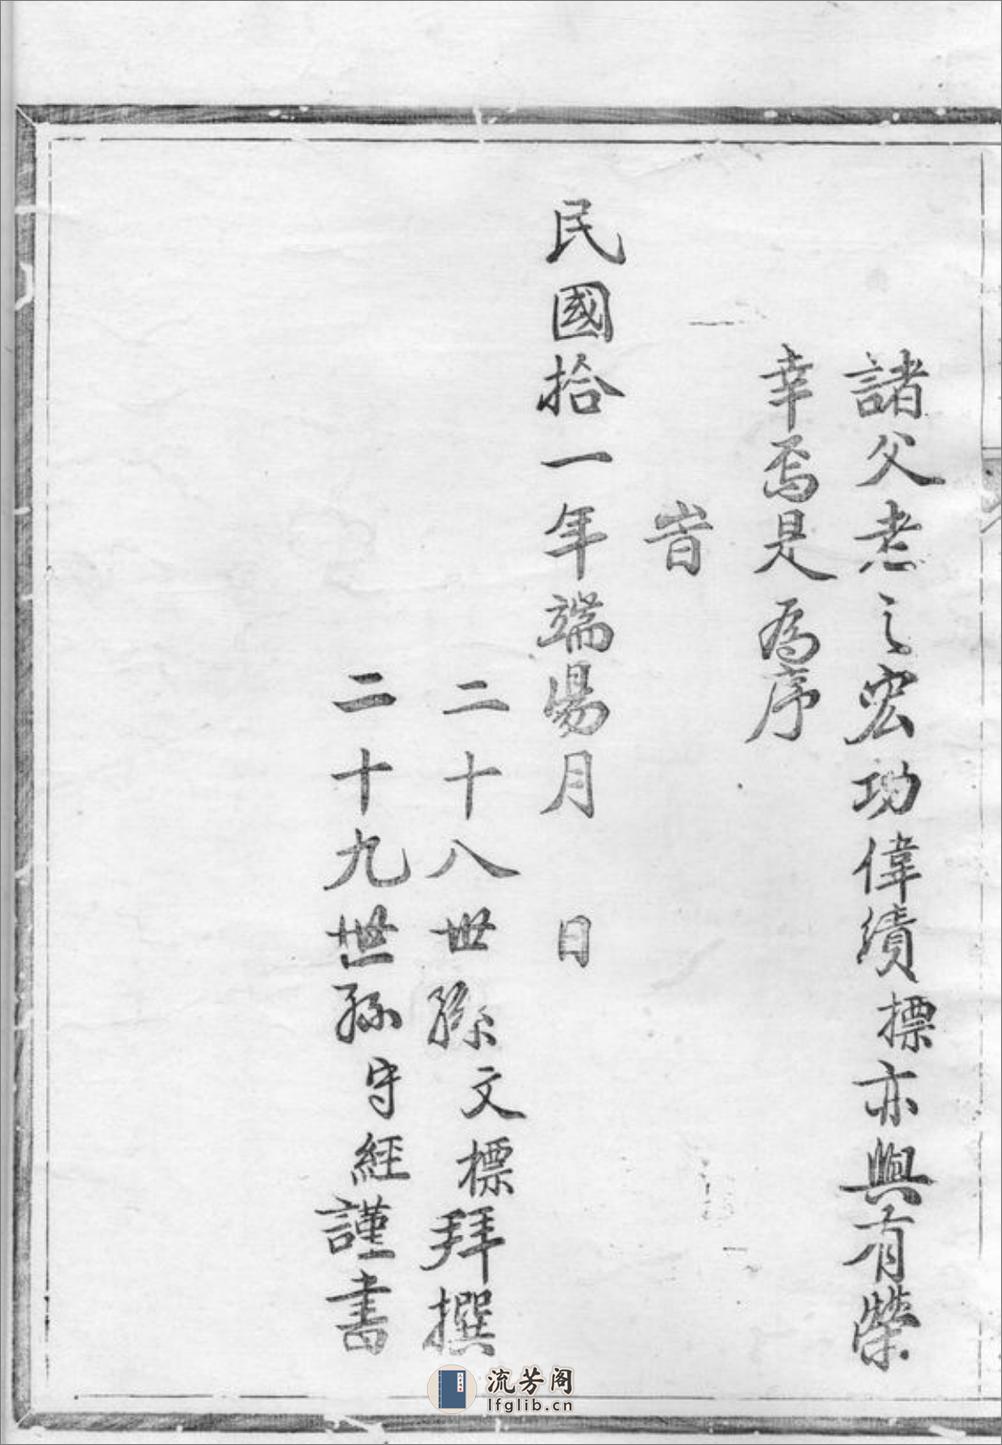 諸父老之宏功偉績標亦與有榮
幸焉是為序
旹
民國拾一年端陽月 日
二十八世孫文標拜撰
二十九世孫守經謹書
流芳阁
lfglib.cn